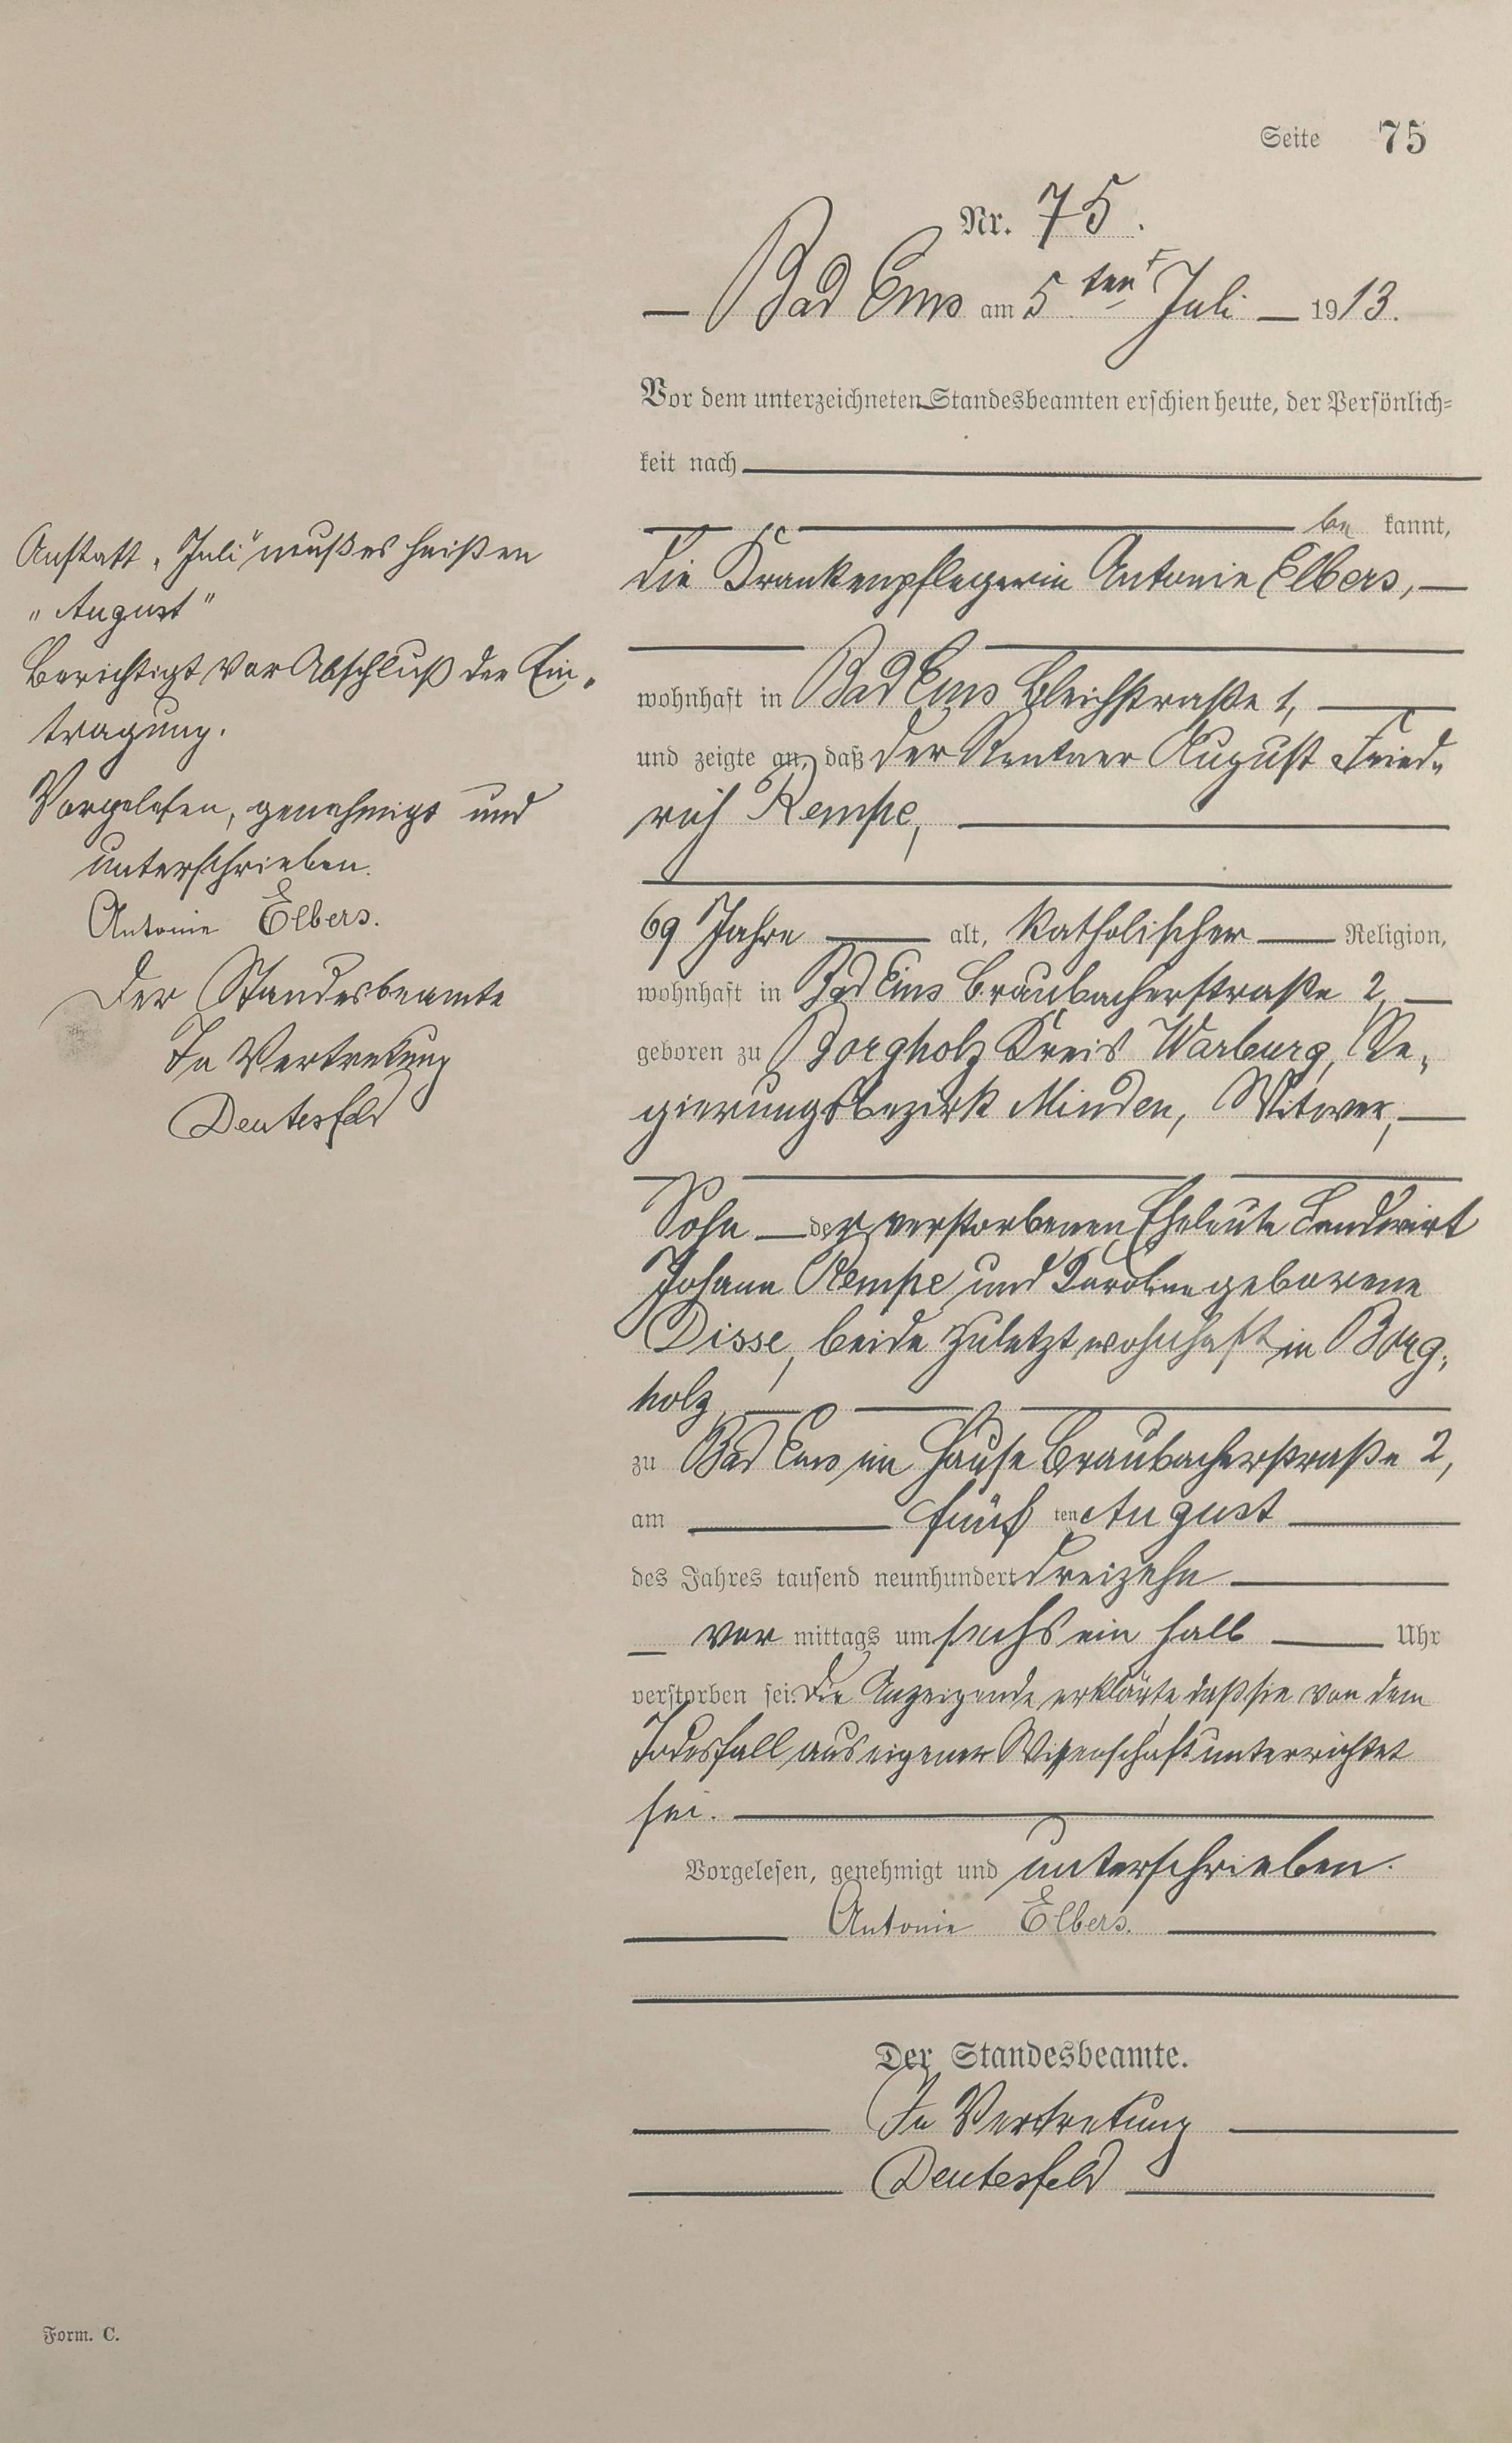 Seite 75
Nr. 75.
Bad Ems am 5 ten Juli 1913.
Vor dem unterzeichneten Standesbeamten erschien heute, der Persönlich=
keit nach
be kannt,
die Krankenpflegerin Antonie Elbers,
wohnhaft in Bad Ems Bleichstraße 1,
und zeigte an, daß der Rentner August Fried-
rich Rempe,
69 Jahre alt, katholischer Religion,
wohnhaft in Bad Ems Braubacherstraße 2,
geboren zu Borgholz Kreis Warburg, Re-
gierungsbezirk Minden, Witwer,
Sohn der verstorbenen Eheleute Landwirt
Johann Rempe und Karoline geborene
Disse, beide zuletzt wohnhaft in Borg-
holz,
zu Bad Ems im Hause Braubacherstraße 2,
am fünf ten August
des Jahres tausend neunhundert dreizehn
vor mittags um sechs ein halb Uhr
verstorben sei. Die Anzeigende erklärte, daß sie von dem
Todesfall aus eigener Wissenschaft unterrichtet
sei.
Vorgelesen, genehmigt und unterschrieben.
Antonie Elbers.
Der Standesbeamte.
In Vertretung
Deutesfeld
Anstatt "Juli" muß es heißen
"August"
Berichtigt vor Abschluß der Ein-
tragung.
Vorgelesen, genehmigt und
unterschrieben.
Antonie Elbers.
Der Standesbeamte
In Vertretung
Deutesfeld
Form. C.